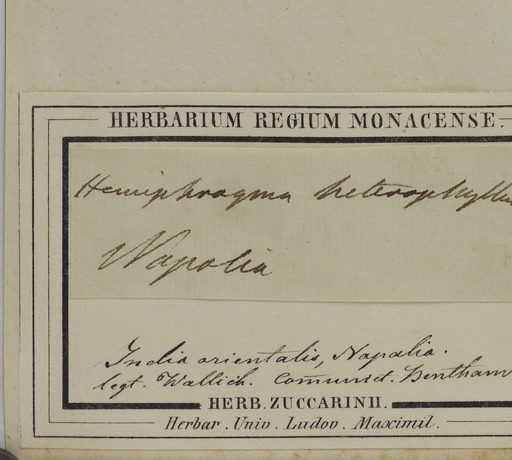 HERBARIUM REGIUM MONACENSE
Hemiphragma heterophyllu
Napolia
India orientalis, Napalia.
legt. Wallich. Comunict. Bentham
HERB. ZUCCARINII.
Herbar. Univ. Ludov. Maximil.